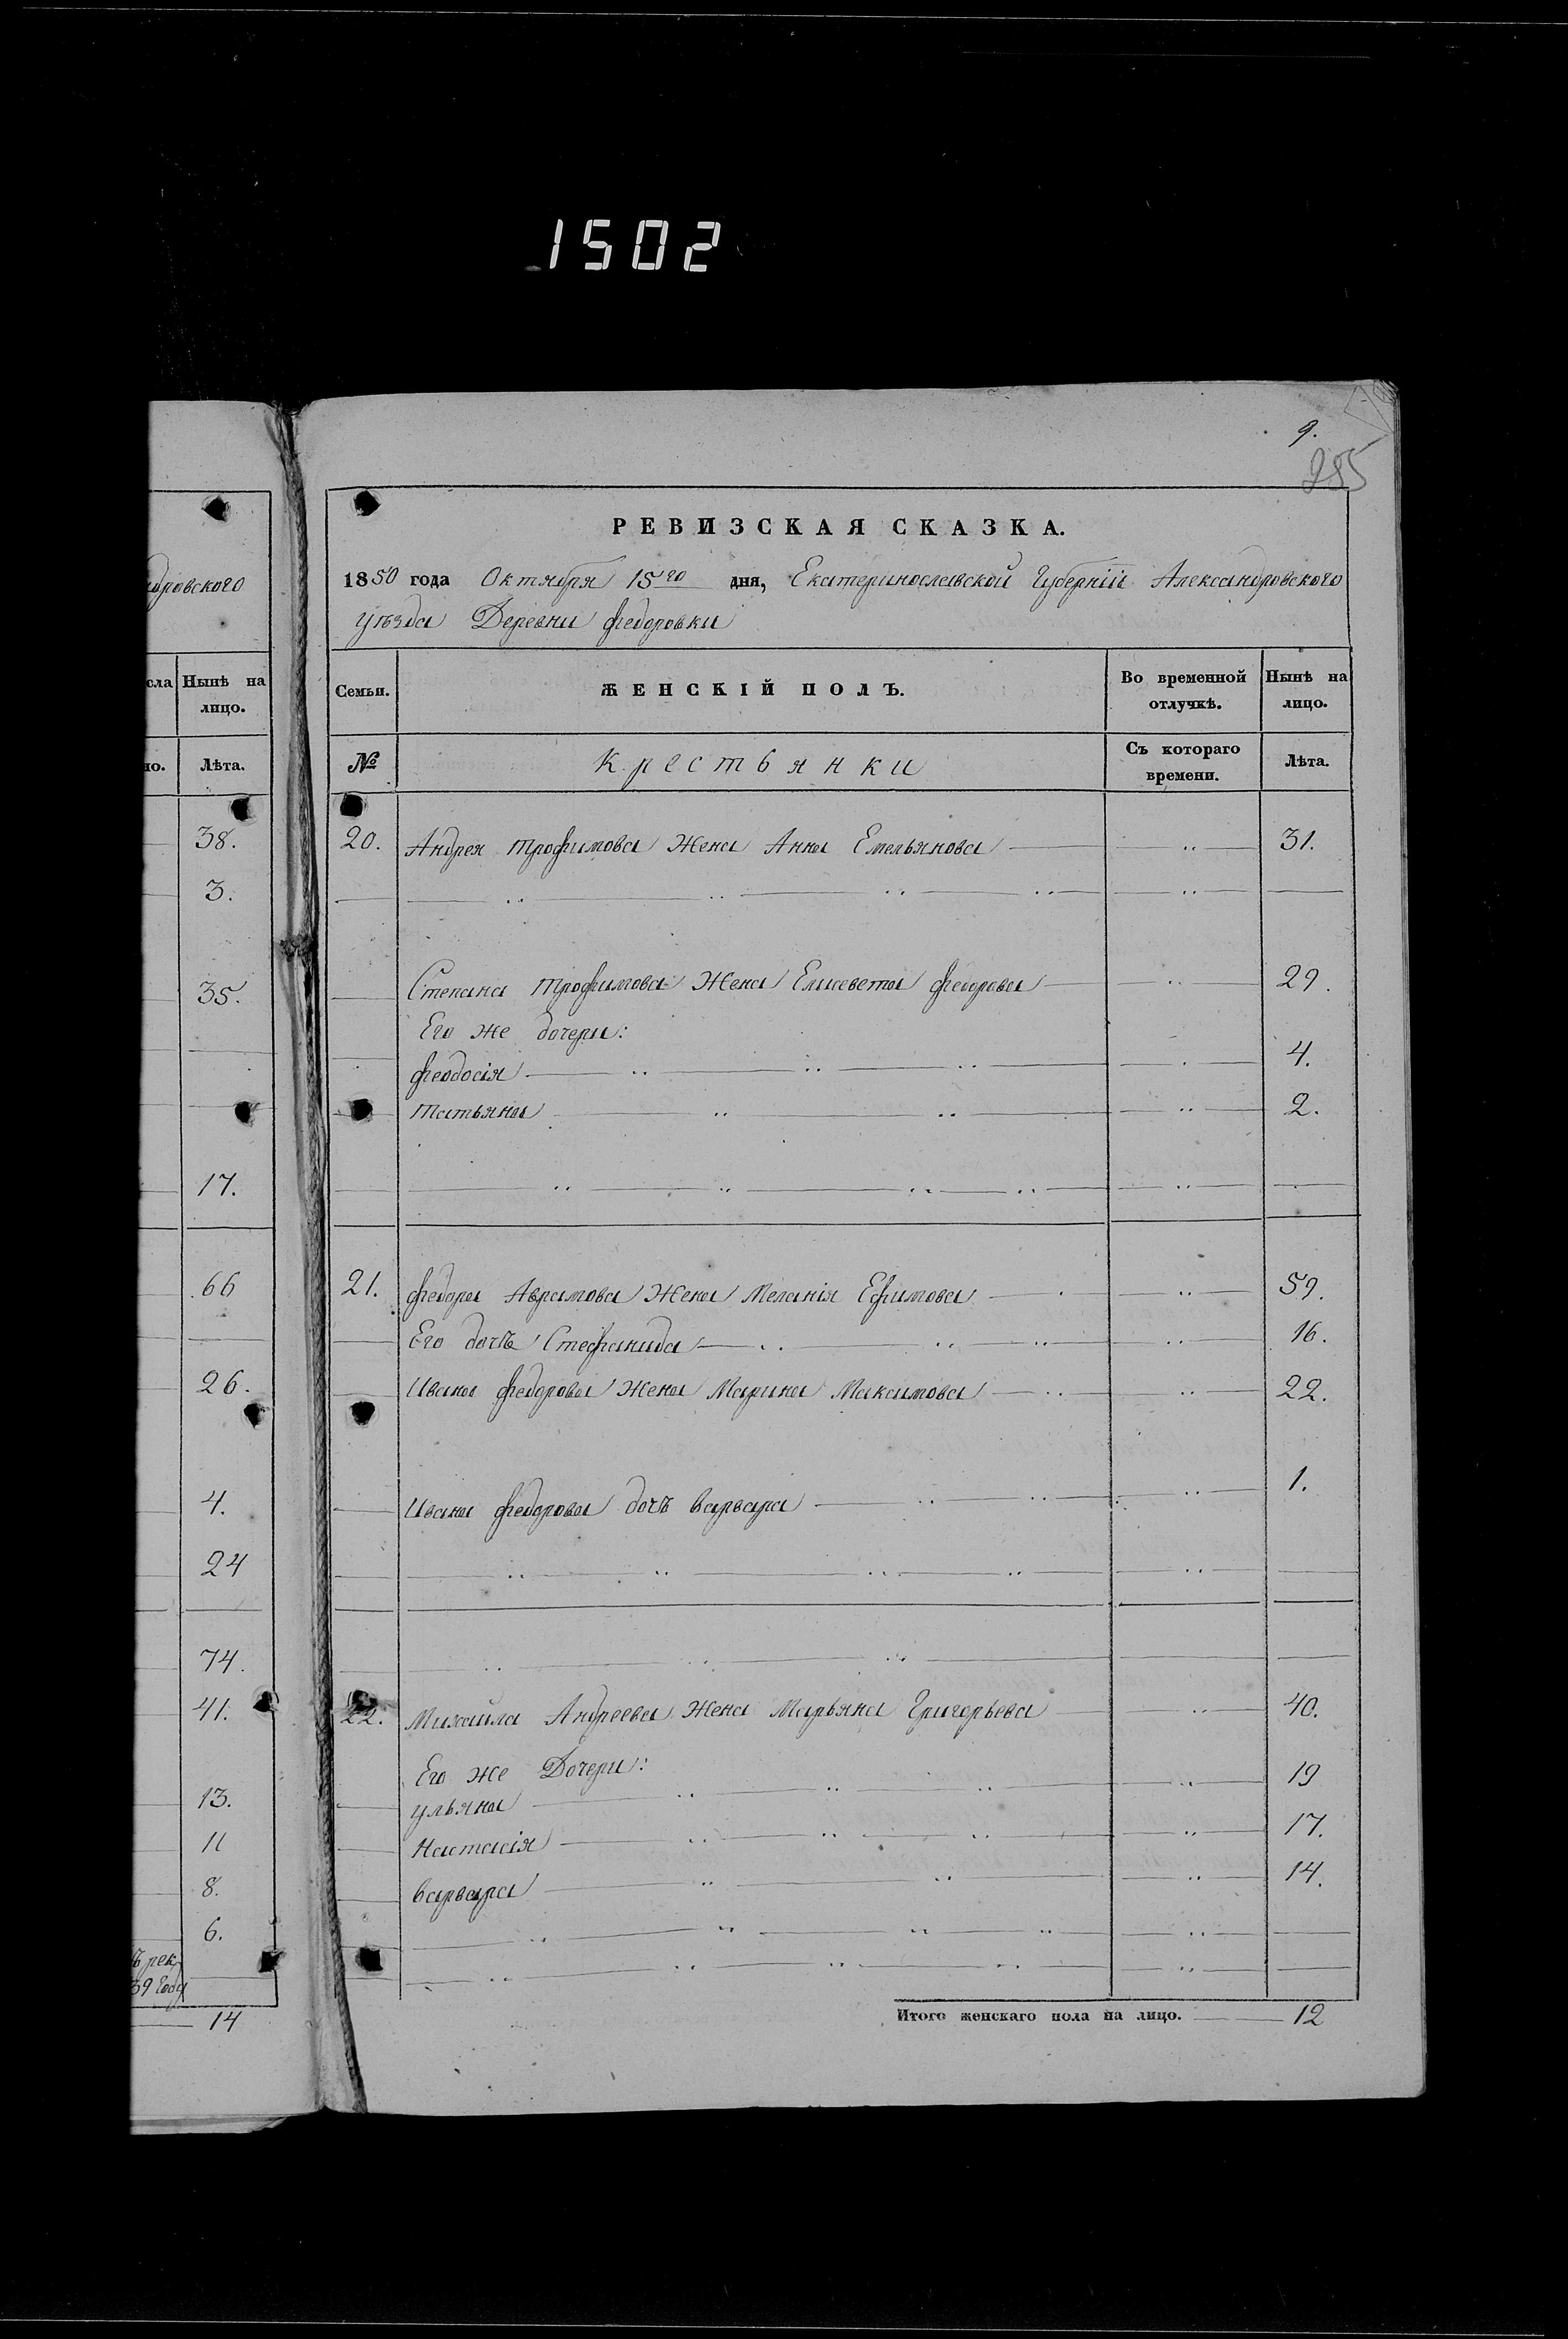 1502
9.
285
РЕВИЗСКАЯ СКАЗКА.
1850 года Октября 15го дня, Екатеринославской Губернiи Александровского
уѣзда Деревни Федоровки
Семьи. ЖЕНСКIЙ ПОЛЪ. Во временной отлучкѣ. Нынѣ на лицо.
№ Крестьянки Съ котораго времени. Лѣта.
20. Андрея Трофимова Жена Анна Емельянова 31.
Степана Трофимова Жена Елисевета Федорова 29.
Его же дочери:
Феодосiя 4.
Татьяна 2.
21. Федора Аврамова Жена Меланiя Ефимова 59.
Его дочь Стефанида 16.
Ивана Федорова Жена Марина Максимова 22.
Ивана Федорова дочь Варвара 1.
22. Михайла Андреева Жена Марьяна Григорьева 40.
Его же Дочери:
Ульяна 19
Настасiя 17.
Варвара 14.
Итого женскаго пола на лицо. 12
дровского
сла Нынѣ на лицо.
но. Лѣта.
38.
3.
35.
17.
66
26.
4.
24
74.
41.
13.
11
8.
6.
ъ рек
39 году
14